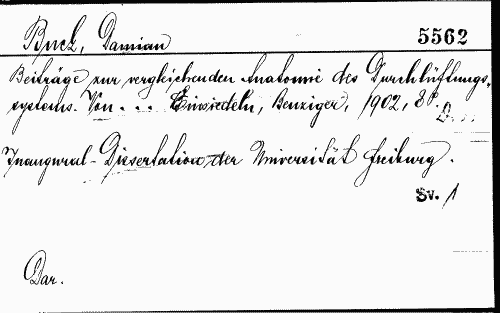 Buck, Damian
5562
Beiträge zur vergleichenden Anatomie des Durchlüftungs-
systems. Von . . . Einsiedeln, Benziger, 1902, 8º.
Inaugural-Dissertation der Universität Freiburg.
Sv. 1
Dar.